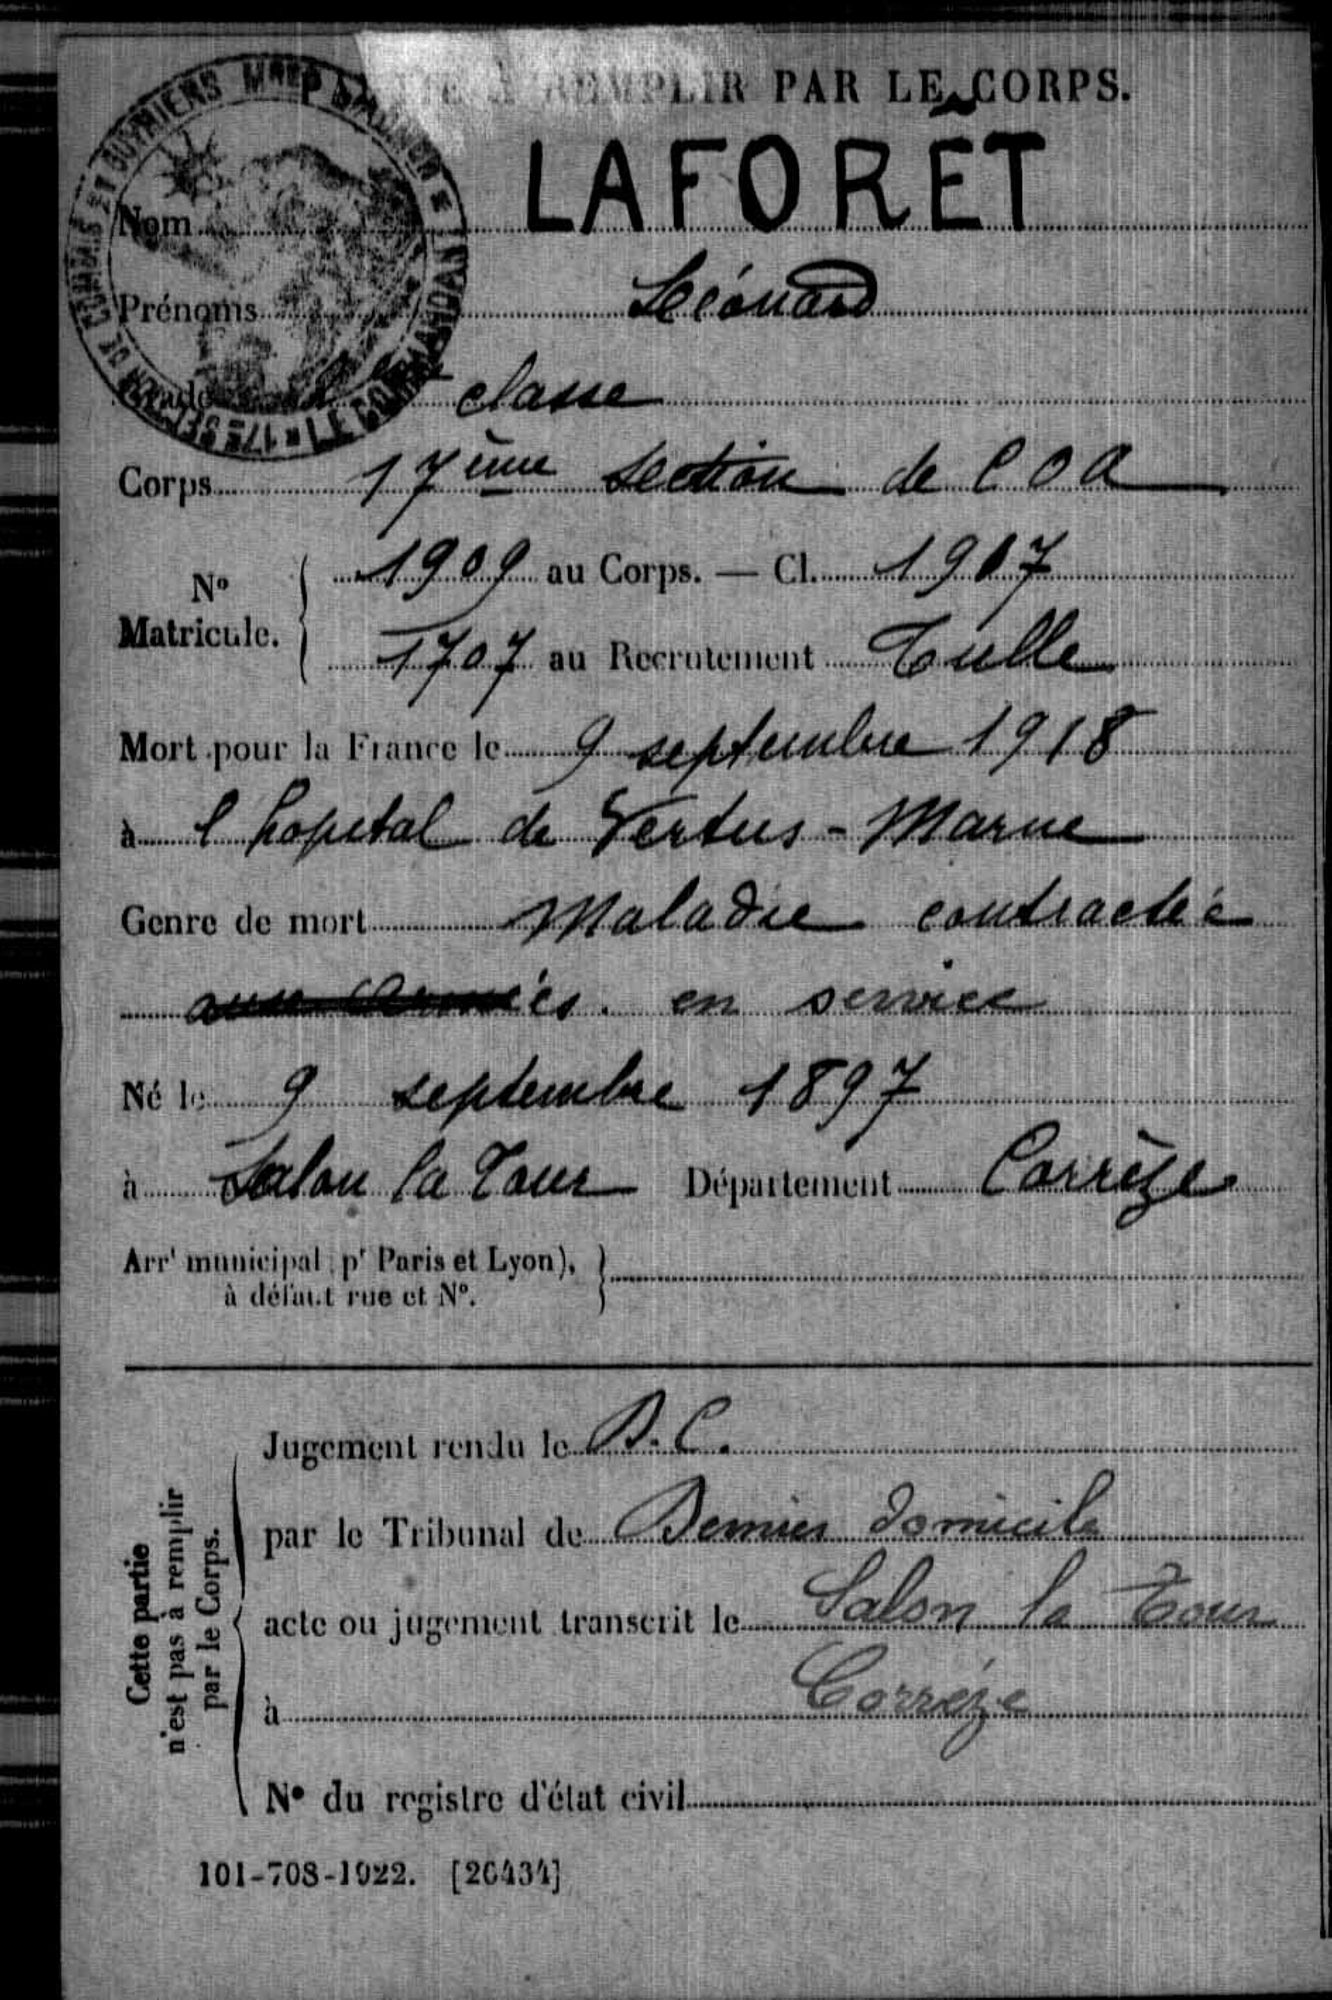 PARTIE À REMPLIR PAR LE CORPS.
Nom LAFORÊT
Prénoms Léonard
classe
Corps 17ème Section de COA
N° Matricule. 1909 au Corps. — Cl. 1917
1707 au Recrutement Tulle
Mort pour la France le 9 septembre 1918
à l hopital de Vertus - Marne
Genre de mort Maladie contractée
aux Armées. en service
Né le 9 septembre 1897
à Salon la Tour Département Corrèze
Arrt municipal pr Paris et Lyon),
à défaut rue et N°.
Cette partie
n'est pas à remplir
par le Corps.
Jugement rendu le D.C.
par le Tribunal de Dernier domicile
acte ou jugement transcrit le Salon la Tour
à Corrèze
N° du registre d'état civil
101-708-1922. [26434]